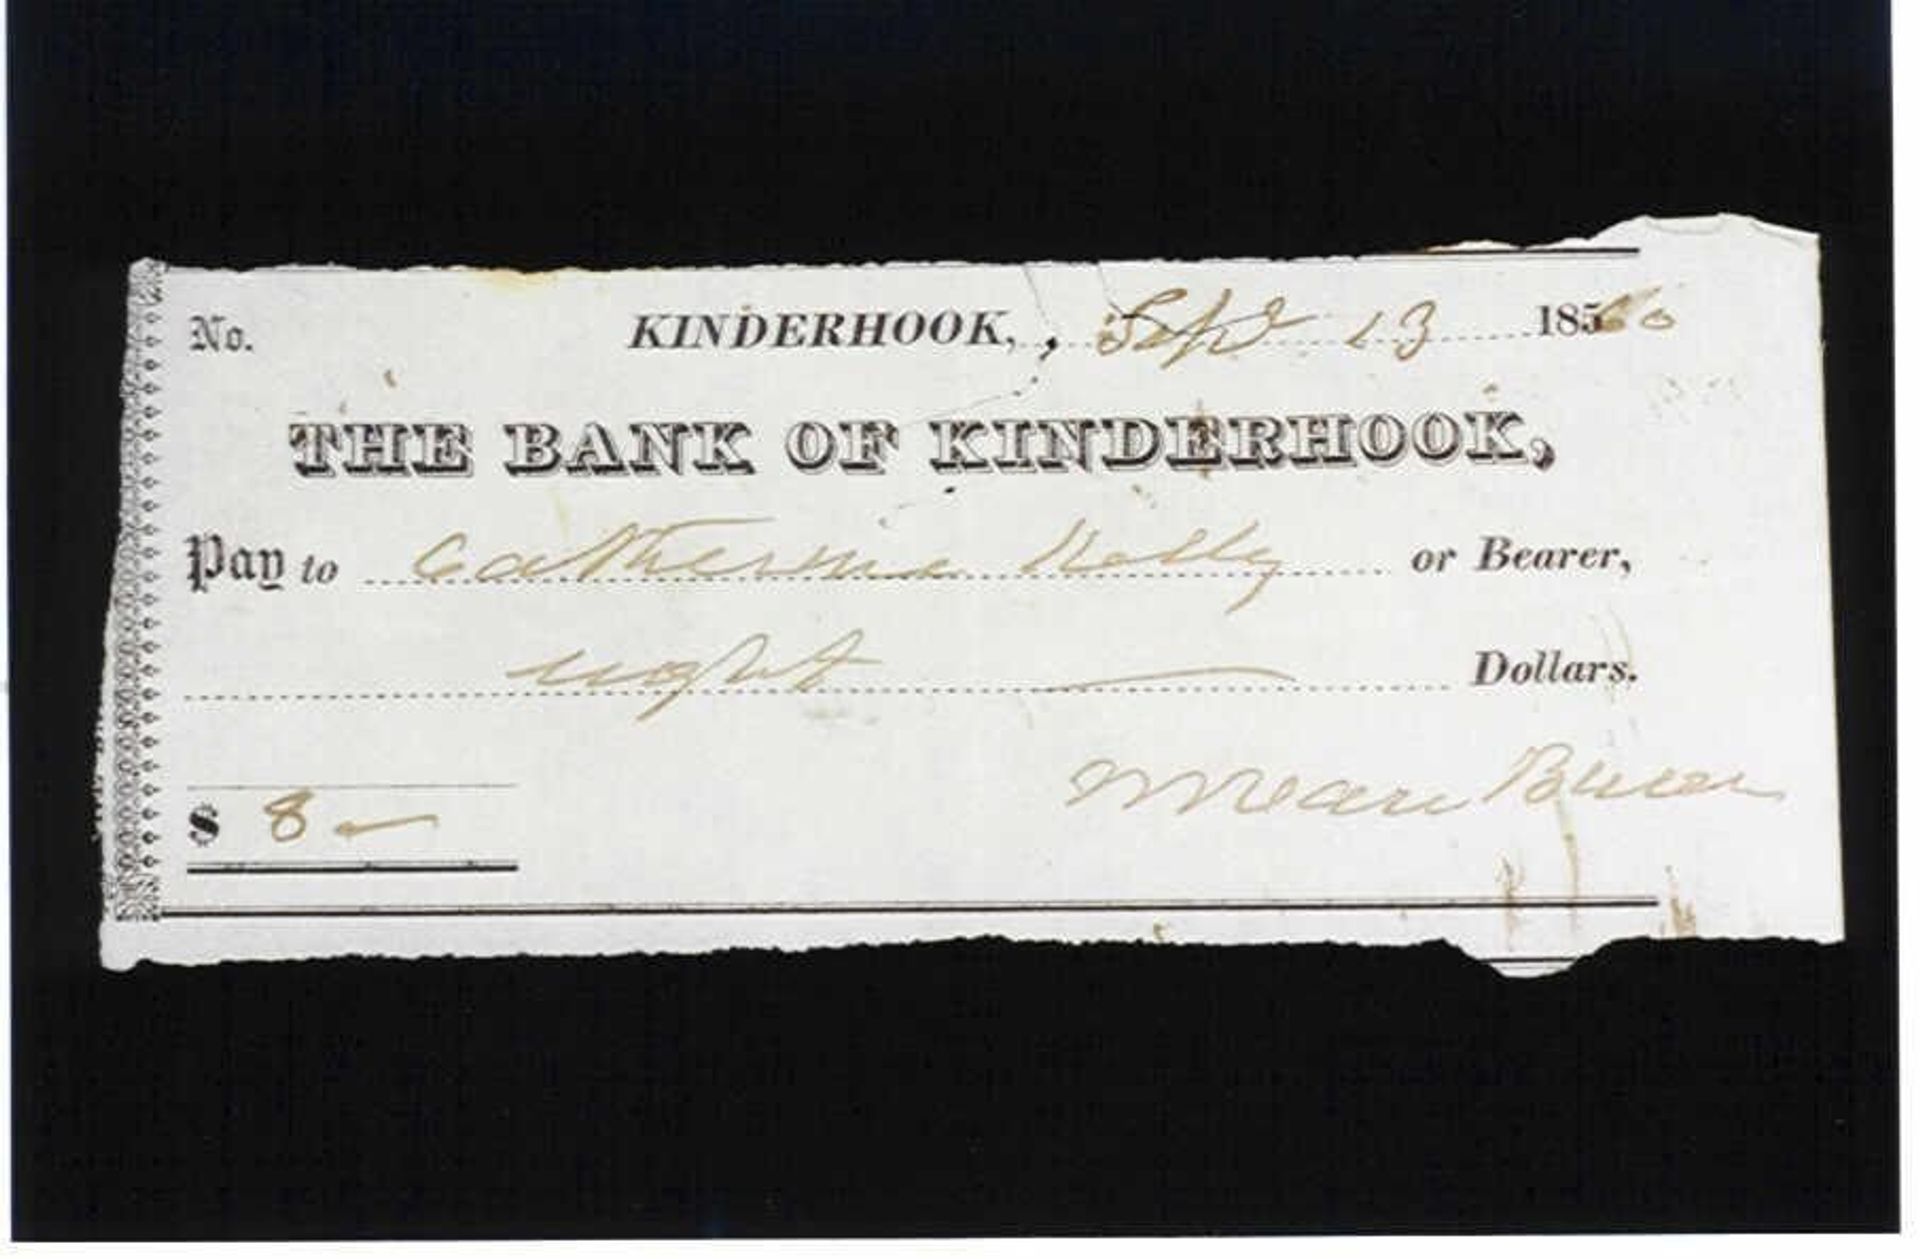 No. KINDERHOOK, Sep 13 1860
THE BANK OF KINDERHOOK,
Pay to Catherine Kelly or Bearer,
eight — Dollars.
$ 8 —
M Van Buren